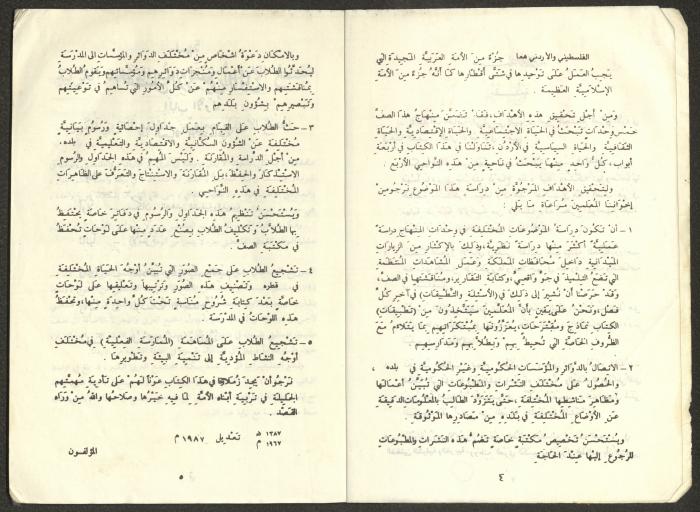 الفلسطيني والأردني هما جزء من الأمة العربية المجيدة التي
يجب العمل على توحيدها في شتى أقطارها كما أنه جزء من الأمة
الإسلامية العظيمة .
ومن أجل تحقيق هذه الأهداف، فقد تضمن منهاج هذا الصف
خمس وحدات تبحث في الحياة الاجتماعية والحياة الاقتصادية والحياة
الثقافية والحياة السياسية في الأردن، تناولتنا في هذا الكتاب في أربعة
أبواب، كل واحد منها يبحث في ناحية من هذه النواحي الأربع .
ولتحقيق الأهداف المرجوة من دراسة هذا الموضوع نرجو من
إخواننا المعلمين مراعاة ما يلي :
١ - أن تكون دراسة الموضوعات المختلفة في وحدات المنهاج دراسة
عملية أكثر منها دراسة نظرية، وذلك بالإكثار من الزيارات
الميدانية داخل محافظات المملكة وعمل المشاهدات المنتظمة
التي تضع التلميذ في جو واقعي، وكتابة التقارير، ومناقشتها في الصف،
وقد حرصنا أن نشير إلى ذلك في (الأسئلة والتطبيقات) في آخر كل
فصل، ونحن على يقين بأن المعلمين سيتخذون من (تطبيقات)
الكتاب نماذج ومقترحات، يعززونها بمبتكراتهم بما يتلاءم مع
الظروف الخاصة التي تحيط بهم وبطلابهم ومدارسهم .
٢ - الاتصال بالدوائر والمؤسسات الحكومية وغير الحكومية في بلده ،
والحصول على مختلف النشرات والمطبوعات التي تبين أعمالها
ومظاهر مناشطها المختلفة، حتى يتزود الطالب بالمعلومات الدقيقة
عن الأوضاع المختلفة في بلده من مصادرها الموثوقة .
ويستحسن تخصيص مكتبة خاصة تضم هذه النشرات والمطبوعات
للرجوع إليها عند الحاجة .
٤
وبالامكان دعوة أشخاص من مختلف الدوائر والمؤسسات الى المدرسة
ليحدثوا الطلاب عن أعمال ومنجزات دوائرهم ومؤسساتهم ويقوم الطلاب
بمناقشتهم والاستفسار منهم عن كل الأمور التي تساهم في توعيتهم
وتبصيرهم بشؤون بلدهم
٣ - حث الطلاب على القيام بعمل جداول إحصائية ورسوم بيانية
مختلفة عن الشؤون السكانية والاقتصادية والتعليمية في بلده،
من أجل الدراسة والمقارنة . وليس المهم في هذه الجداول والرسوم
الاستذكار والحفظ، بل المقارنة والاستنتاج والتعرف على الظاهرات
المختلفة في هذه النواحي .
ويستحسن تنظيم هذه الجداول والرسوم في دفاتر خاصة يحتفظ
بها الطلاب وتكليف الطلاب بصنع عدد منها على لوحات تحفظ
في مكتبة الصف .
٤ - تشجيع الطلاب على جمع الصور التي تبين أوجه الحياة المختلفة
في قطره وتصنيف هذه الصور وترتيبها وتعليقها على لوحات
خاصة بعد كتابة شروح مناسبة تحت كل واحدة منها، وتحفظ
هذه اللوحات في المدرسة .
٥ - تشجيع الطلاب على المساهمة (الممارسة الفعلية) في مختلف
أوجه النشاط المؤدية إلى تنمية البيئة وتطويرها .
نرجو أن يجد زملاؤنا في هذا الكتاب عونا لهم على تأدية مهمتهم
الجليلة في تربية أبناء الأمة لما فيه خيرها وصلاحها والله من وراء
القصد .
١٣٨٧ هـ
١٩٦٧ م
تعديل ١٩٨٧ م
المؤلفون
٥